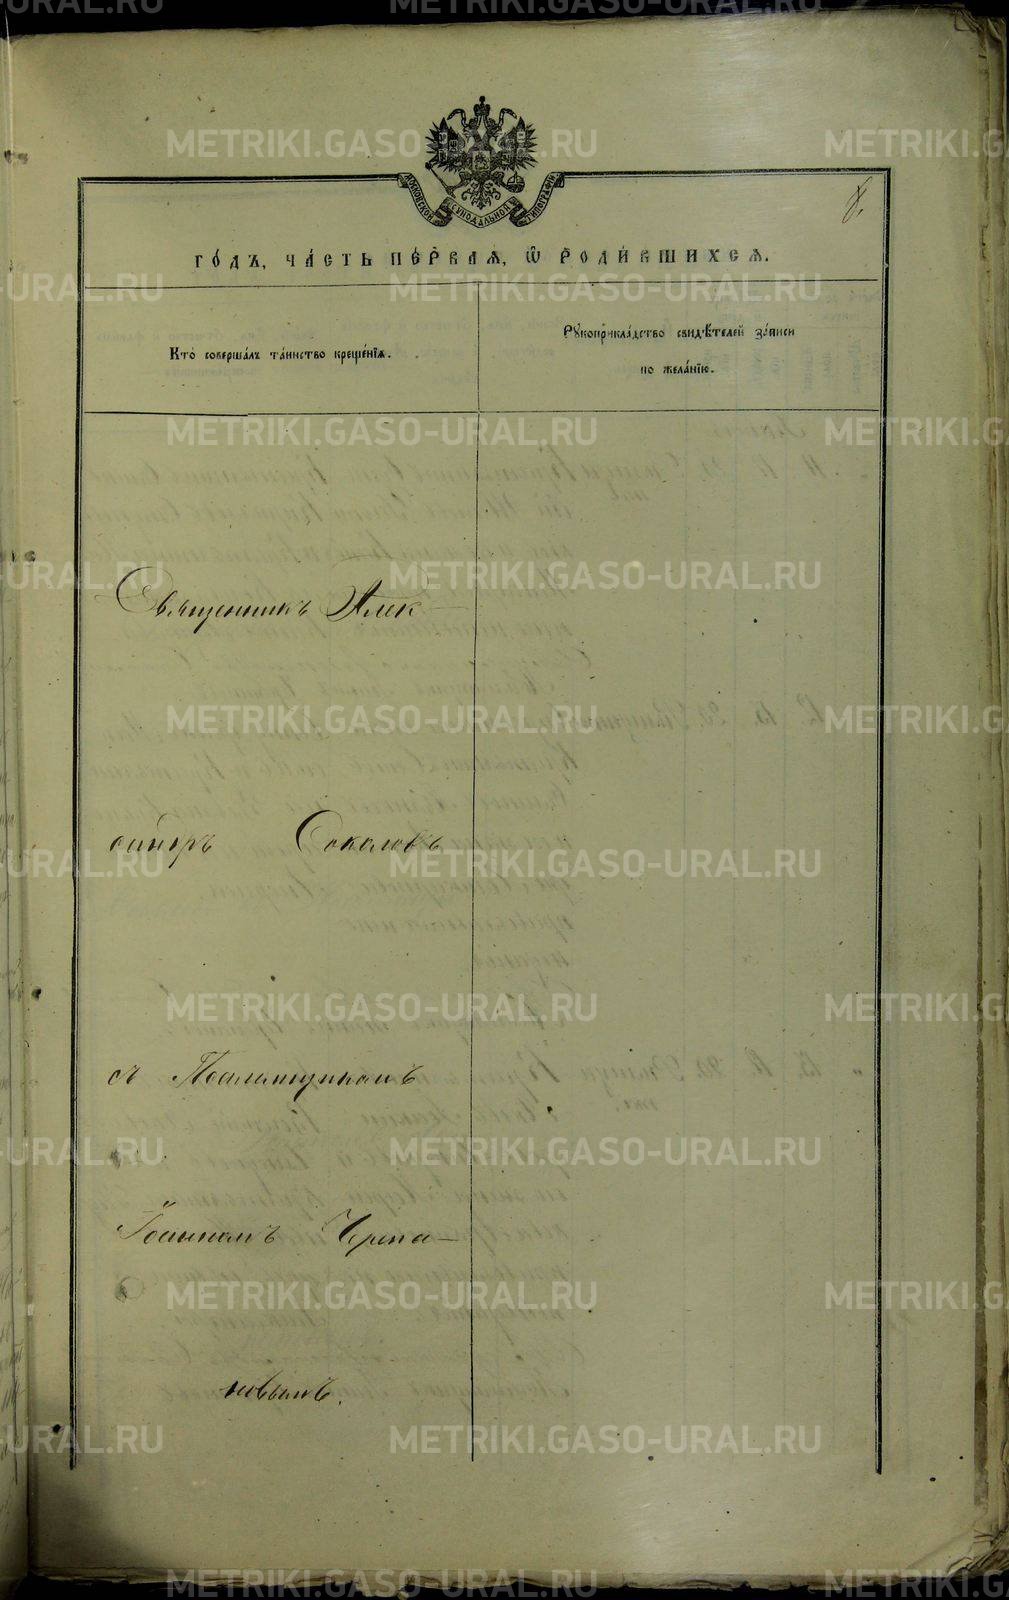 МОСКОВСКОЙ СѴНОДАЛЬНОЙ ТИПОГРАФІИ
8.
ГО́ДЪ, ЧА́СТЬ ПЕ́РВАѦ, Ѽ РОДИ́ВШИХСѦ.
Кто̀ соверша́лъ та́инство креще́нїѧ.
Рꙋкоприкла́дство свидѣ́телей за́писи
по жела́нїю.
Священникъ Алек-
сандръ Соколовъ
съ Псаломщикомъ
Іоанномъ Черпа-
новымъ.
METRIKI.GASO-URAL.RU